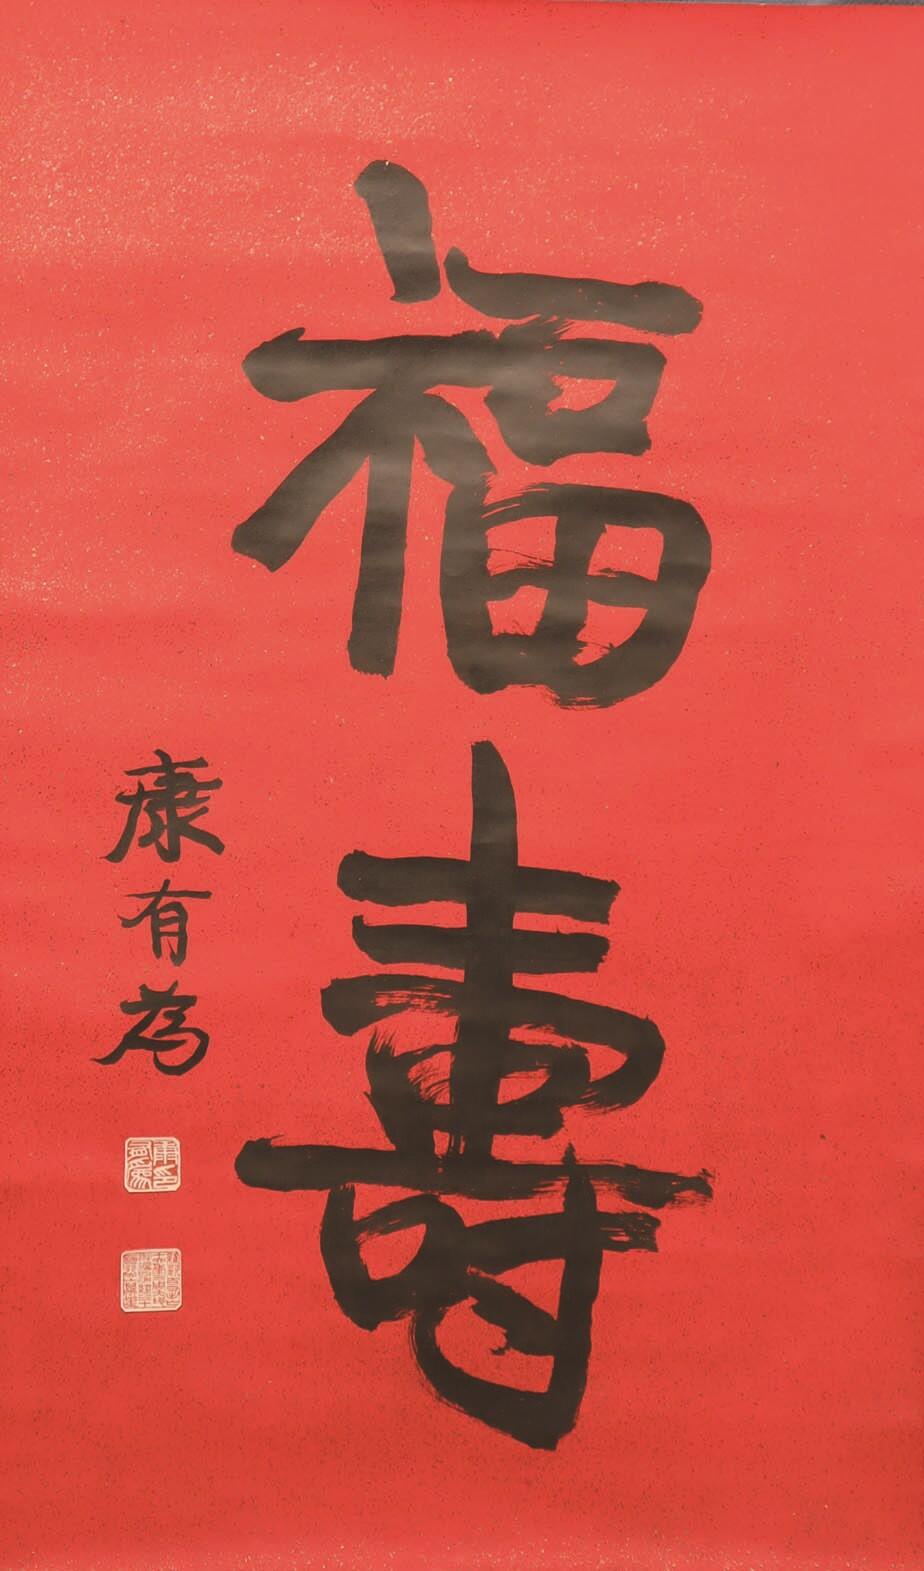 福壽
康有為